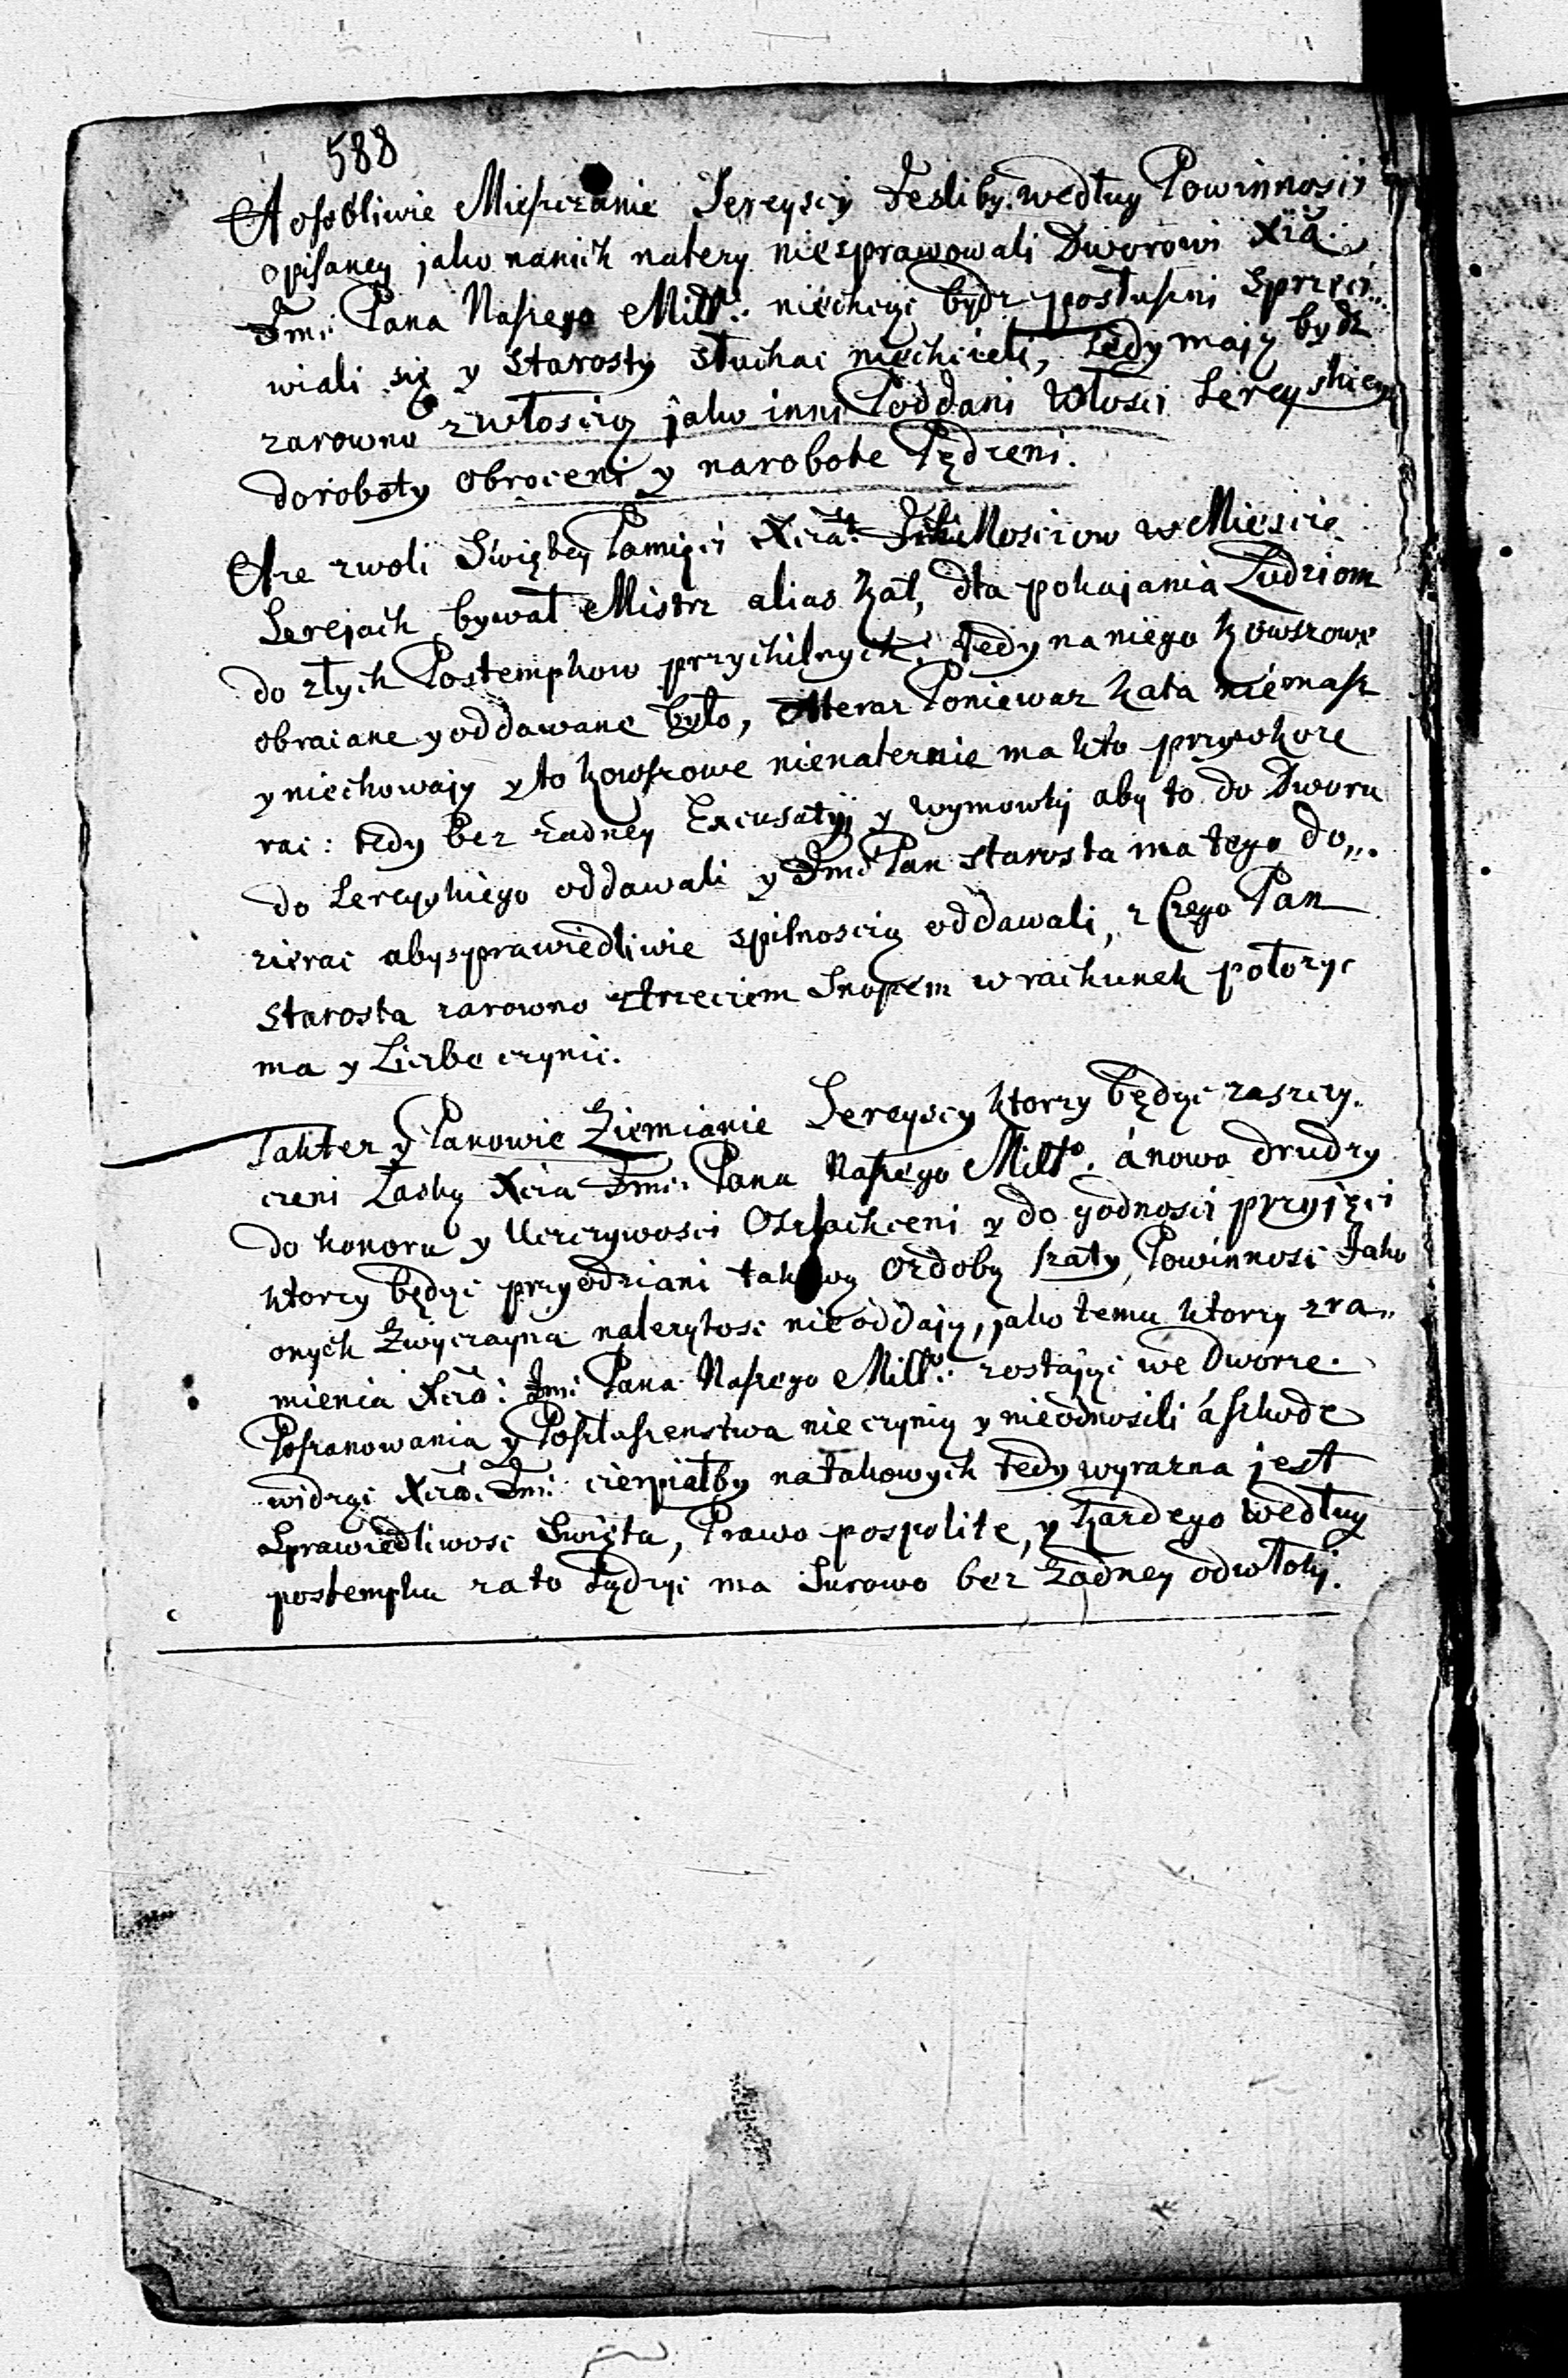 588
A osobliwie Mieszczanie Sereyscy Jesliby według Powinnosci
opisaney jako nanich nalezy niesprawowali Dworowi Xcia
Jmci Pana Naszego Miłł: niechcąc bydz posłuszni Sprzeci,,
wiali się y Starosty słuchac niechcieli, tedy mają bydz
zarowno z włoscią jako inni Poddani Włosci Sereyskiey
doroboty obroceni y narobote Pędzeni.
A ze zwoli Swiętey Pamięci Xcia Mosciow w Miescie
Serejach bywał Mistrz alias Kat, dla pokajania Ludziom
do złych Postempkow przychilnych, tedy na niego Kowszowe
obracane y oddawane było, Ateraz Poniewaz kata niemasz
y niechowają y to kowszowe nienaleznie ma kto przywłosz
rac: tedy bez zadney Excusatij y wymowki aby to do Dworu
do Sereyskiego oddawali y Jmc Pan Starosta ma tego do,,
zierac aby sprawiedliwie spilnoscią oddawali, z Czego Pan
Starosta zarowno ztrzeciem Snopem w rachunek połozyc
ma y Liczbe czynic.
Taktez y Panowie Ziemianie Sereyscy ktorzy będąc zaszczy,,
czeni Łaską Xcia Jmci Pana Naszego Miłł: á nowo drudzy
do honoru y Uczczywosci Ozlachceni y do godnosci przyjęci
ktorzy będąc przyodziani takową Ozdobą szaty, Powinnosc Jako
onych Zwyczayna nalezytosc nie oddają, jako temu ktory zra,,
mienia Xcia: Jmci Pana Naszego Miłł: zostając we Dworze
Poszanowania y Posłuszenstwa nieczynią y nieodnosili á szkode
widząc Xcia. Jmci cierpiałby natakowych tedy wyrazna jest
Sprawiedliwosc Swięta, Prawo pospolite, y kazdego według
postempku zato Sądzic ma Surowo bez zadney odwłoki.